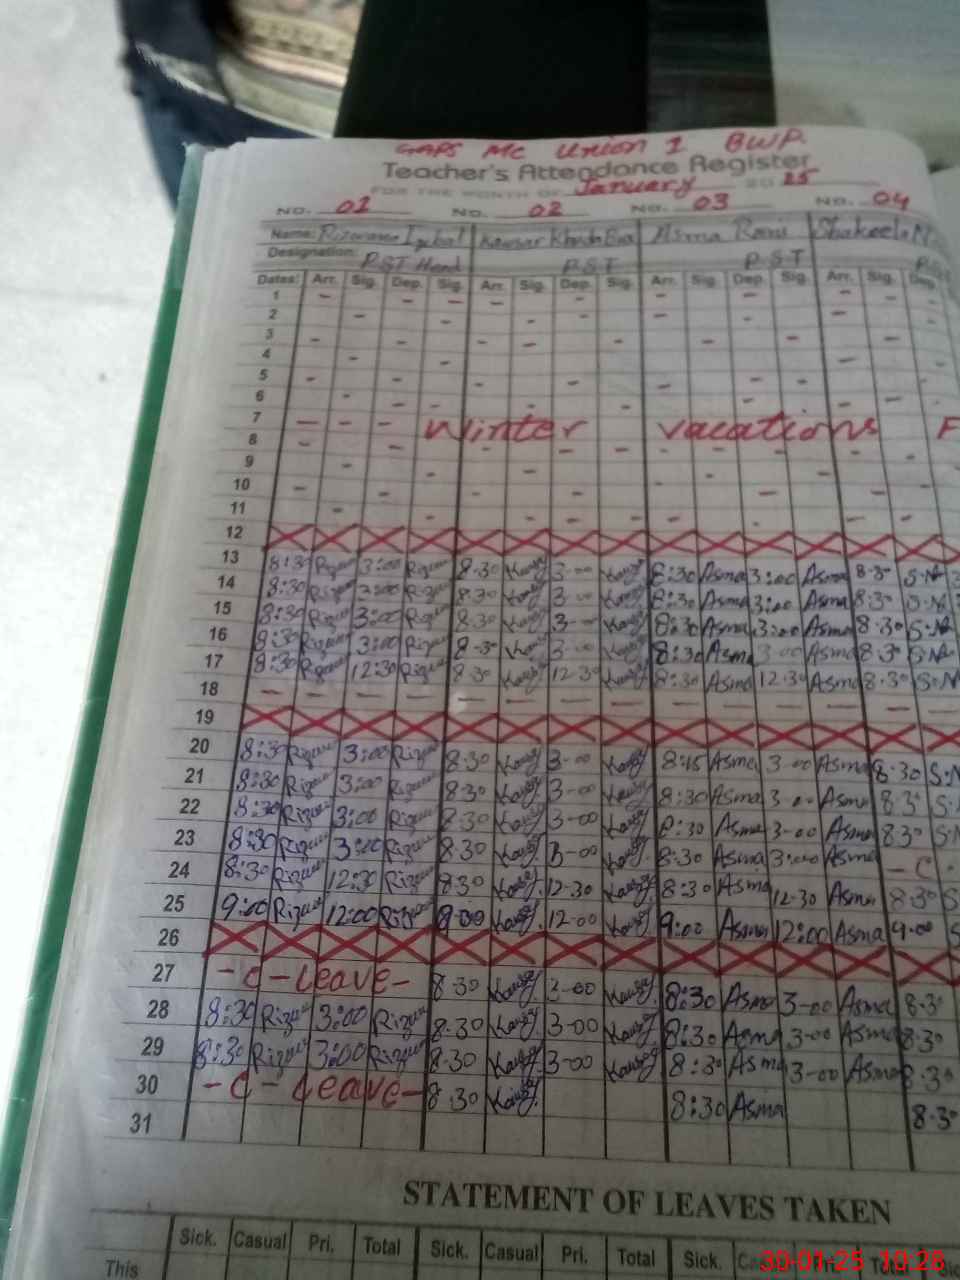 GAPS MC Union 1 BWP.
Teacher's Attendance Register
FOR THE MONTH OF January 20 25
NO. 01 NO. 02 NO. 03 NO. 04
Name: Rizwana Iqbal Kausar Asma Rani Shakeela
Designation: P.S.T Head P.S.T P.S.T
Dates: Arr. Sig. Dep. Sig. Arr. Sig. Dep. Sig. Arr. Sig. Dep. Sig. Arr. Sig. Dep.
1
2
3
4
5
6
7 Winter vacations F
8
9
10
11
12
13 8:30 Rizwan 3:00 Rizwan 8.30 Kausar 3-00 Kausar 8:30 Asma 3:00 Asma 8.30 S.N
14 8:30 Rizwan 3:00 Rizwan 8.30 Kausar 3-00 Kausar 8:30 Asma 3:00 Asma 8.30 S.N
15 8:30 Rizwan 3:00 Rizwan 8.30 Kausar 3-00 Kausar 8:30 Asma 3:00 Asma 8.30 S.N
16 8:30 Rizwan 3:00 Rizwan 8.30 Kausar 3-00 Kausar 8:30 Asma 3:00 Asma 8.30 S.N
17 8:30 Rizwan 12:30 Rizwan 8.30 Kausar 12-30 Kausar 8:30 Asma 12-30 Asma 8.30 S.N
18
19
20 8:30 Rizwan 3:00 Rizwan 8.30 Kausar 3-00 Kausar 8:15 Asma 3-00 Asma 8.30 S.N
21 8:30 Rizwan 3:00 Rizwan 8.30 Kausar 3-00 Kausar 8:30 Asma 3-00 Asma 8.30 S.
22 8:30 Rizwan 3:00 Rizwan 8.30 Kausar 3-00 Kausar 8:30 Asma 3-00 Asma 8.30 S.N
23 8:30 Rizwan 3:00 Rizwan 8.30 Kausar 3-00 Kausar 8:30 Asma 3:00 Asma - C -
24 8:30 Rizwan 12:30 Rizwan 8.30 Kausar 12-30 Kausar 8:30 Asma 12-30 Asma 8.30 S
25 9:00 Rizwan 12:00 Rizwan 9-00 Kausar 12-00 Kausar 9:00 Asma 12:00 Asma 9.00 S
26
27 - C - Leave - 8.30 Kausar 3-00 Kausar 8:30 Asma 3-00 Asma 8.30
28 8:30 Rizwan 3:00 Rizwan 8.30 Kausar 3-00 Kausar 8:30 Asma 3-00 Asma 8.30
29 8:30 Rizwan 3:00 Rizwan 8.30 Kausar 3-00 Kausar 8:30 Asma 3-00 Asma 8.30
30 - C - Leave - 8.30 Kausar 8:30 Asma 8.30
31
STATEMENT OF LEAVES TAKEN
Sick. Casual Pri. Total Sick. Casual Pri. Total Sick. Pri. Total
This
30-01-25 10:28